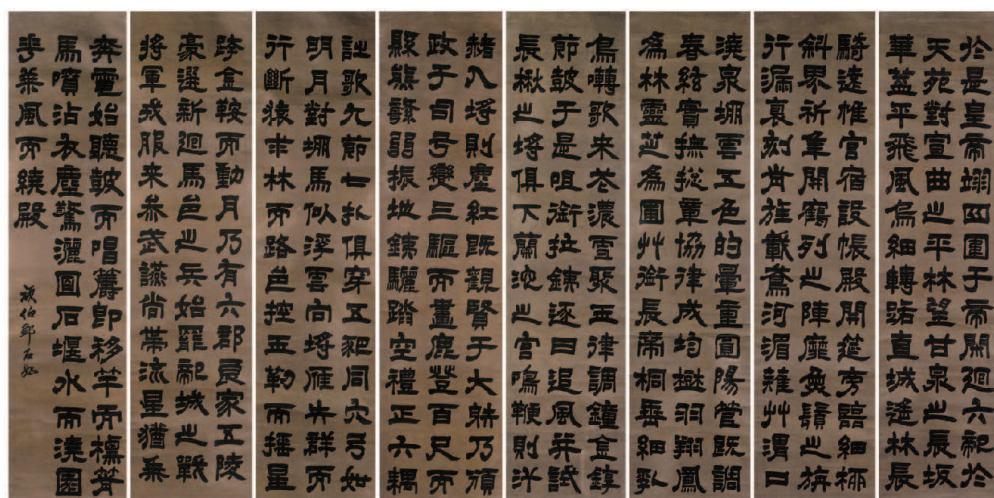 於是皇帝翊四圍于帝閑迴六龍於
天苑對宣曲之平林望甘泉之長坂
華蓋平飛風烏細轉路直城遙林長
騎遠帷宮宿設帳殿開筵旁臨細柳
斜界祈年開鶴列之陣靡魚鬚之旃
行漏裹刻前旌載鳶河湄薙艸渭口
澆泉堋雲五色的暈重圓陽管既調
春絃實撫總章協律成均樹羽翔鳳
為林靈芝為圃艸銜長帶桐垂細乳
鳥囀歌來花濃雪聚玉律調鐘金錞
節鼓于是咀銜拉鐵逐日追風並試
長楸之埒俱下蘭池之宮鳴鞭則汗
赭入埒則塵紅既觀賢于大射乃頒
政于司弓變三驅而畫鹿登百尺而
縣熊繁弱振地鐵驪蹋空禮正六耦
詩歌九節七札俱穿五豝同穴弓如
明月對堋馬似浮雲向埒雁失群而
行斷猿求林而路絕控玉勒而搖星
跨金鞍而動月乃有六郡良家五陵
豪選新迴馬邑之兵始罷龍城之戰
將軍戎服來參武讌尚帶流星猶乘
奔電始聽鼓而唱籌即移竿而標箭
馬噴沾衣塵驚灑面石堰水而澆園
花乘風而繞殿
頑伯鄧石如